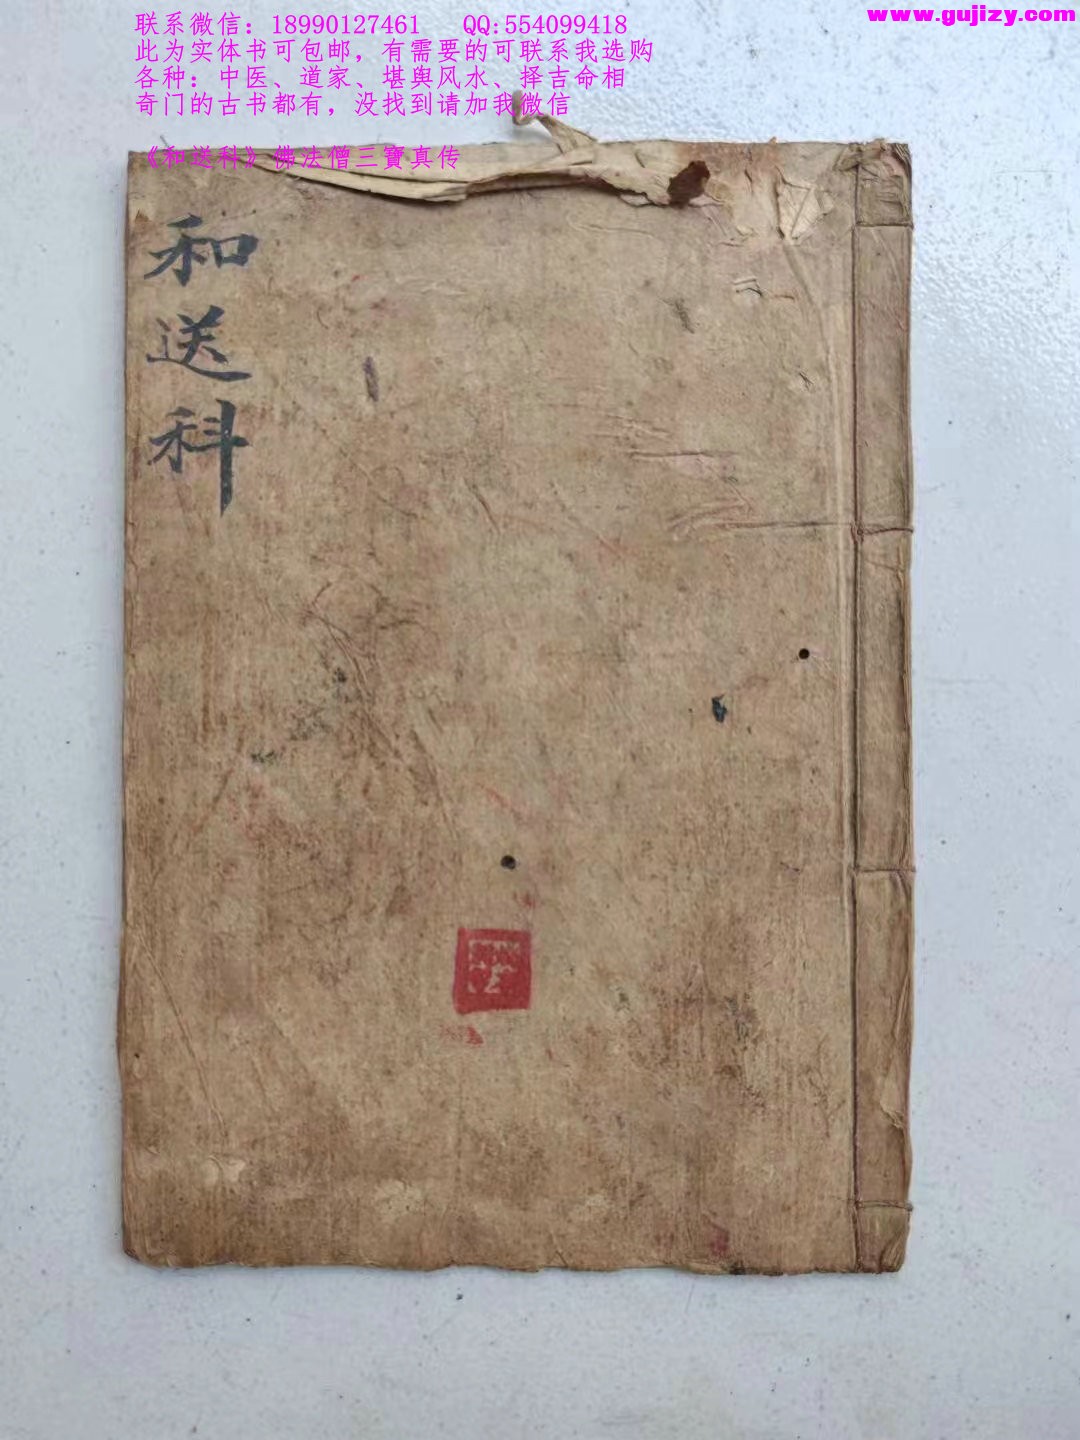 联系微信：18990127461 QQ:554099418
www.gujizy.com
此为实体书可包邮，有需要的可联系我选购
各种：中医、道家、堪舆风水、择吉命相
奇门的古书都有，没找到请加我微信
《和送科》佛法僧三寶真传
和送科